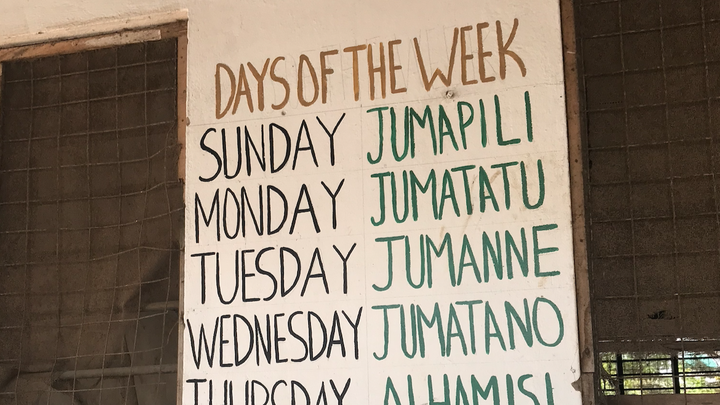 DAYS OF THE WEEK
SUNDAY JUMAPILI
MONDAY JUMATATU
TUESDAY JUMANNE
WEDNESDAY JUMATANO
THURSDAY ALHAMISI